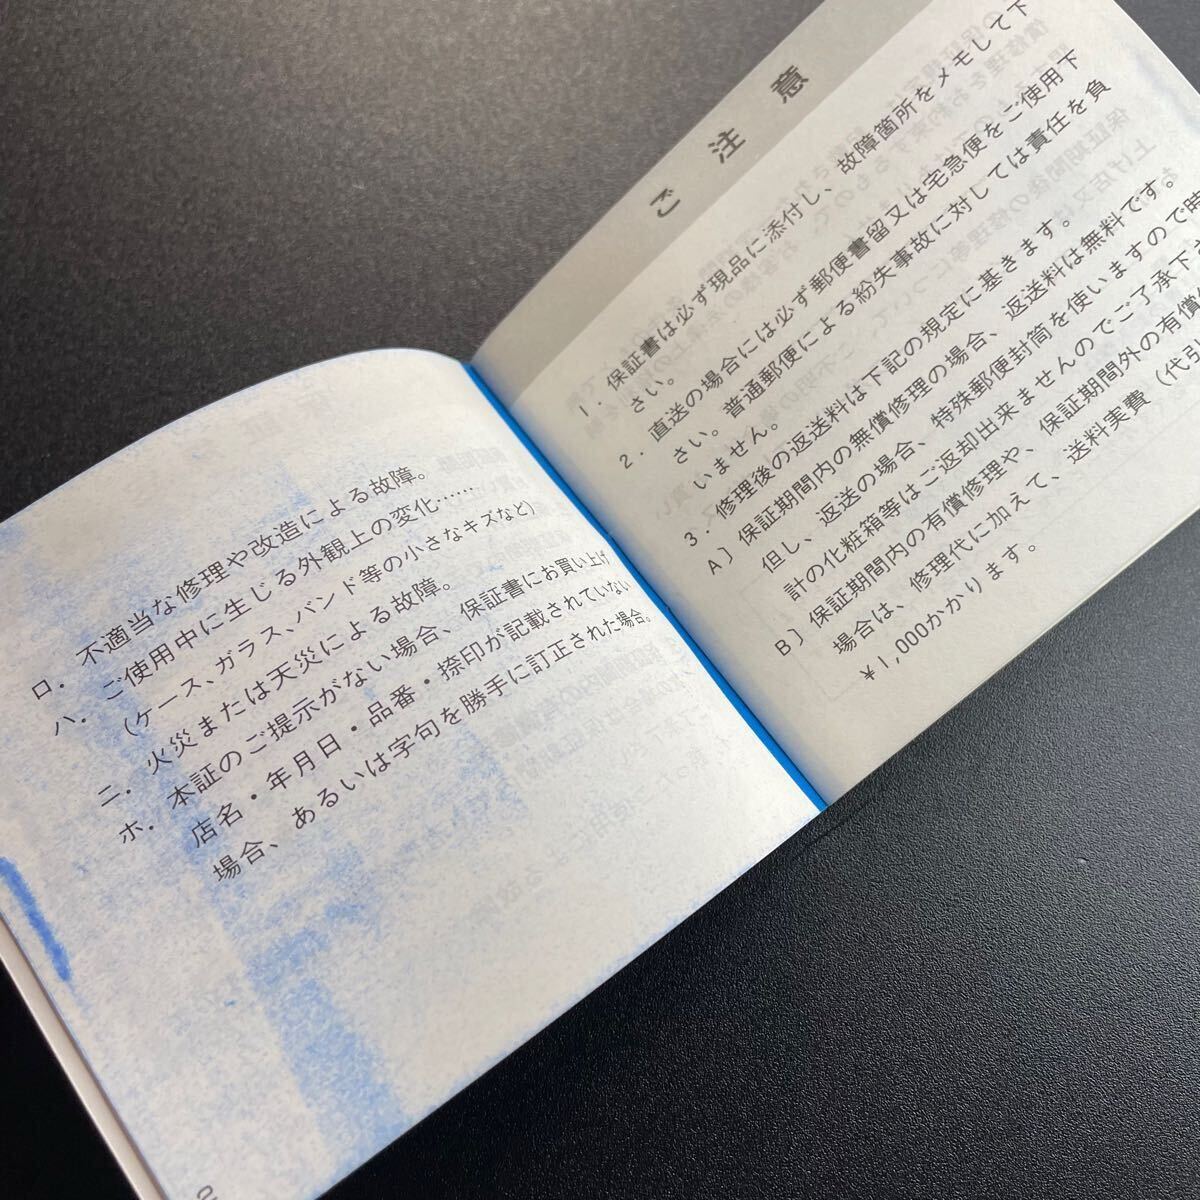 ロ. 不適当な修理や改造による故障。
ハ. ご使用中に生じる外観上の変化……
(ケース、ガラス、バンド等の小さなキズなど)
ニ. 火災または天災による故障。
ホ. 本証のご提示がない場合、保証書にお買い上げ
店名・年月日・品番・捺印が記載されていない
場合、あるいは字句を勝手に訂正された場合。
ご注意
1. 保証書は必ず現品に添付し、故障箇所をメモして下
さい。
2. 直送の場合には必ず郵便書留又は宅急便をご使用下
さい。普通郵便による紛失事故に対しては責任を負
いません。
3. 修理後の返送料は下記の規定に基きます。
A〕保証期間内の無償修理の場合、返送料は無料です。
但し、返送の場合、特殊郵便封筒を使いますので時
計の化粧箱等はご返却出来ませんのでご了承下
B〕保証期間内の有償修理や、保証期間外の有償
場合は、修理代に加えて、送料実費(代引
¥1,000かかります。